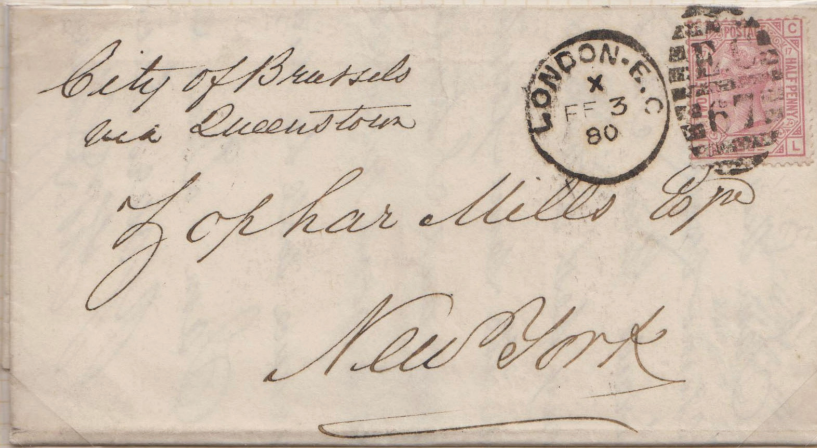 City of Brussels
via Queenstown
LONDON·E.C
X
FE 3
80
POSTA
HALF PENNY
C
L
67
Zophar Mills Esqre
New York